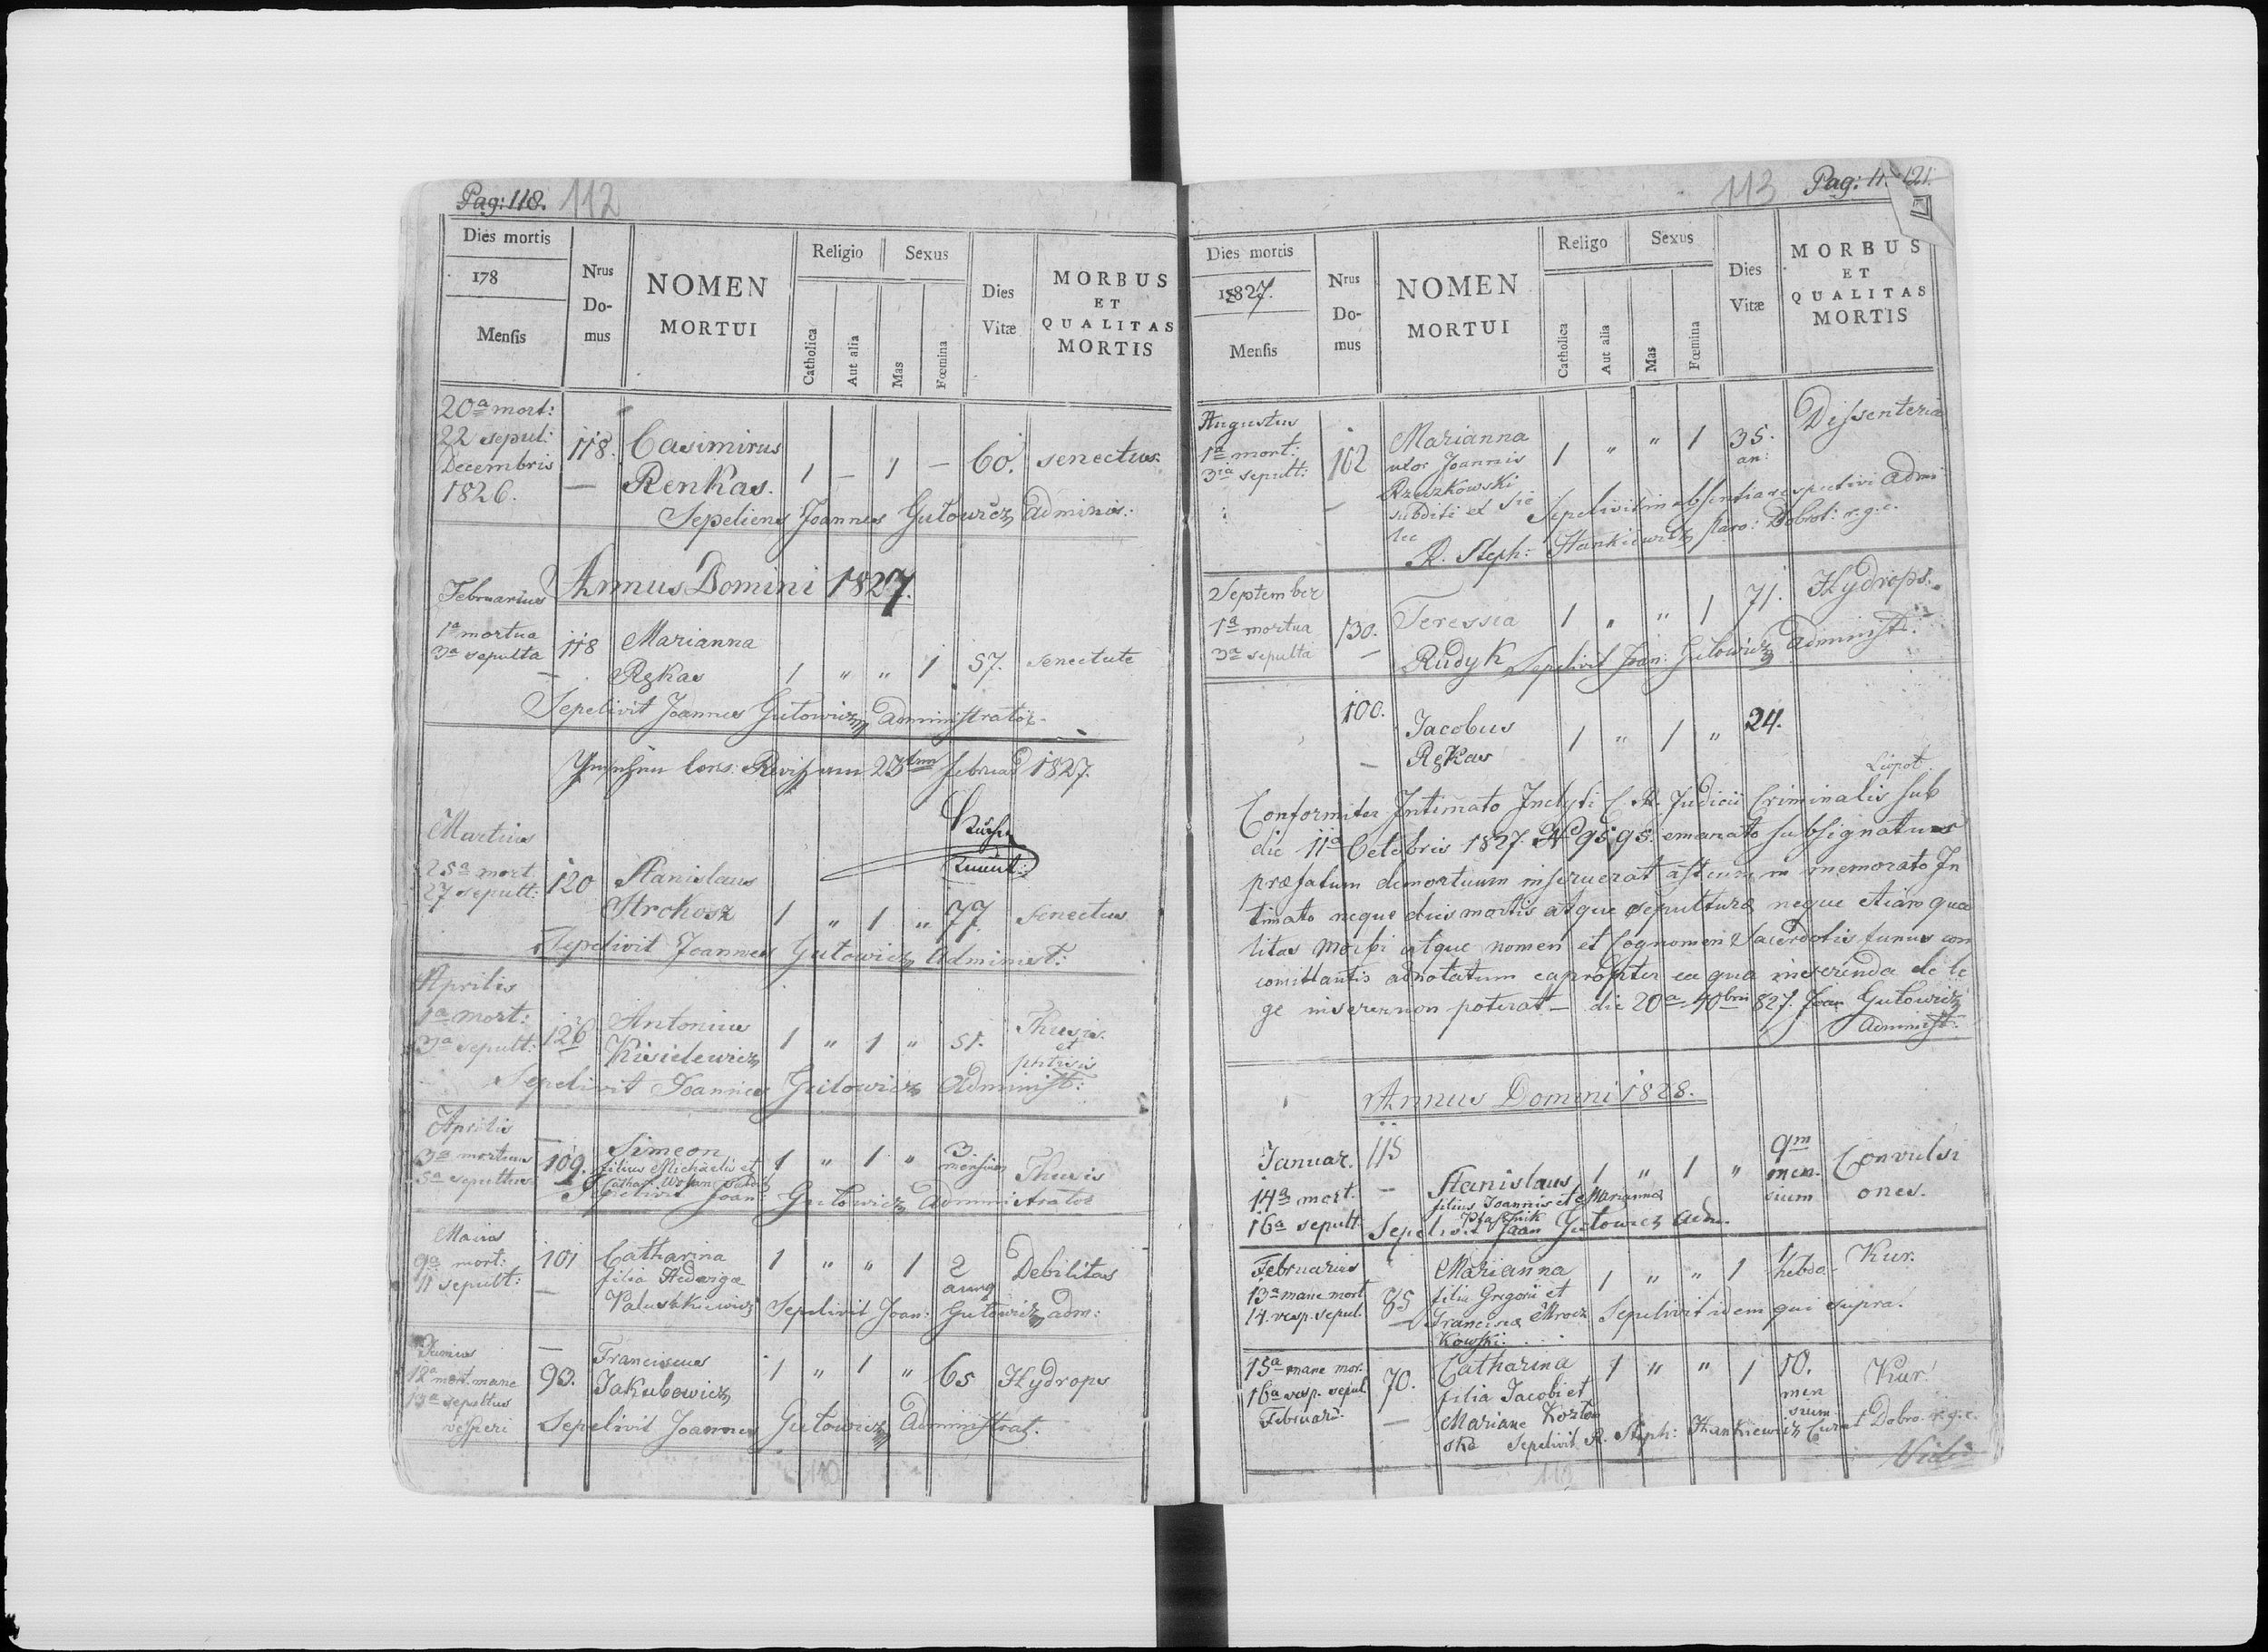 Pag: 118. 112
Dies mortis
178
Mensis
Nrus
Do-
mus
NOMEN
MORTUI
Religio
Catholica
Aut alia
Sexus
Mas
Fœmina
Dies
Vitæ
MORBUS
ET
QUALITAS
MORTIS
20a mort:
22 sepul:
Decembris
1826.
118. Casimirus
Renkas. 1 – 1 – 60. senectus.
Sepeliens Joannes Gutowicz Adminis:
Annus Domini 1827.
Februarius
1a mortua
3a sepulta
118 Marianna
Rękas 1 " " 1 57. senectute
Sepelivit Joannes Gutowicz Administrator.
23 Februar 1827.
Martius
25a mort.
27 sepult:
120 Stanislaus
Strohosz 1 " 1 " 77. senectus
Sepelivit Joannes Gutowicz Administ:
Aprilis
1a mort:
3a sepult:
126 Antonius
Kisielewicz 1 " 1 " 51. Thusis
et
phtisis
Sepelivit Joannes Gutowicz Administ:
Aprilis
3a mortuus
5a sepultus
109. Simeon
filius Michaelis et
1 " 1 " 3.
mensium Thusis
Sepelivit Joan: Gutowicz Administrator
Maius
9a mort:
11 sepult:
101 Catharina
filia Hedwigæ
1 " " 1 2
Debilitas
Sepelivit Joan: Gutowicz adm:
Junius
12a mort. mane
13a sepultus
vesperi
93. Franciscus
Jakubowicz 1 " 1 " 65 Hydrops
Sepelivit Joannes Gutowicz Administrat.
113 Pag: 121.
Dies mortis
1827.
Mensis
Nrus
Do-
mus
NOMEN
MORTUI
Religo
Catholica
Aut alia
Sexus
Mas
Fœmina
Dies
Vitæ
MORBUS
ET
QUALITAS
MORTIS
Augustus
1a mort:
3ia sepult:
102 Marianna
uxor Joannis
Rzeszkowski
subditi et
1 " " 1 35.
an:
Dissenteria
Sepelivit in absentia respectivi Admi
R. Steph: Hankiewicz paro: Dobrot: r.g.c.
September
1a mortua
3a sepulta
130. Teressia
Rudyk 1 " " 1 71. Hydrops.
Sepelivit Joan: Gutowicz Administ:
100. Jacobus
Rękas 1 " 1 " 24.
Conformiter Intimato Inclyti C. R. Judicii Criminalis Leopol. sub
die 11a Octobris 1827. No 9595. emanato subsignatus
præfatum demortuum inseruerat ast cum in memorato In
timato neque dies mortis atque sepulturæ neque etiam qua
litas morbi atque nomen et Cognomen Sacerdotis funus con
comittantis adnotatum eapropter ea qua inserenda de le
ge inserer non poterat – die 20a 10bris 827. Joan Gutowicz
Administ:
Annus Domini 1828.
Januar.
14a mort.
16a sepult.
115 Stanislaus
filius Joannis et Marianna
1 " 1 " 9m
men
sium
Convulsi
ones.
Sepelivit Joan Gutowicz adm.
Februarius
13a mane mort
14. vesp. sepul.
85 Marianna
filia Gregorii et
Francisca Mrocz
kowski.
1 " " 1 1
hebdo
Kur.
Sepelivit idem qui supra.
15a mane mor.
16a vesp. sepul.
Februarii.
70. Catharina
filia Jacobi et
Mariane Kozlow
ska
1 " " 1 10.
men
sium
Kur.
Sepelivit R. Steph: Hankiewicz Curat Dobro. r.g.c.
Vidi